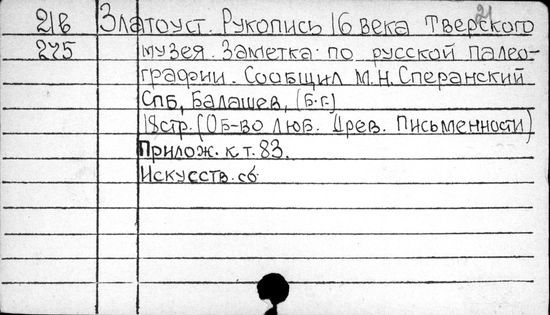 21
21в Златоуст. Рукопись 16 века Тверского
275 музея. Заметка по русской палео-
графии. Сообщил М.Н. Сперанский
Спб, Балашев, (б.г.)
18стр. (Об-во люб. Древ. Письменности)
Прилож. к т. 83.
Искусств. сб.